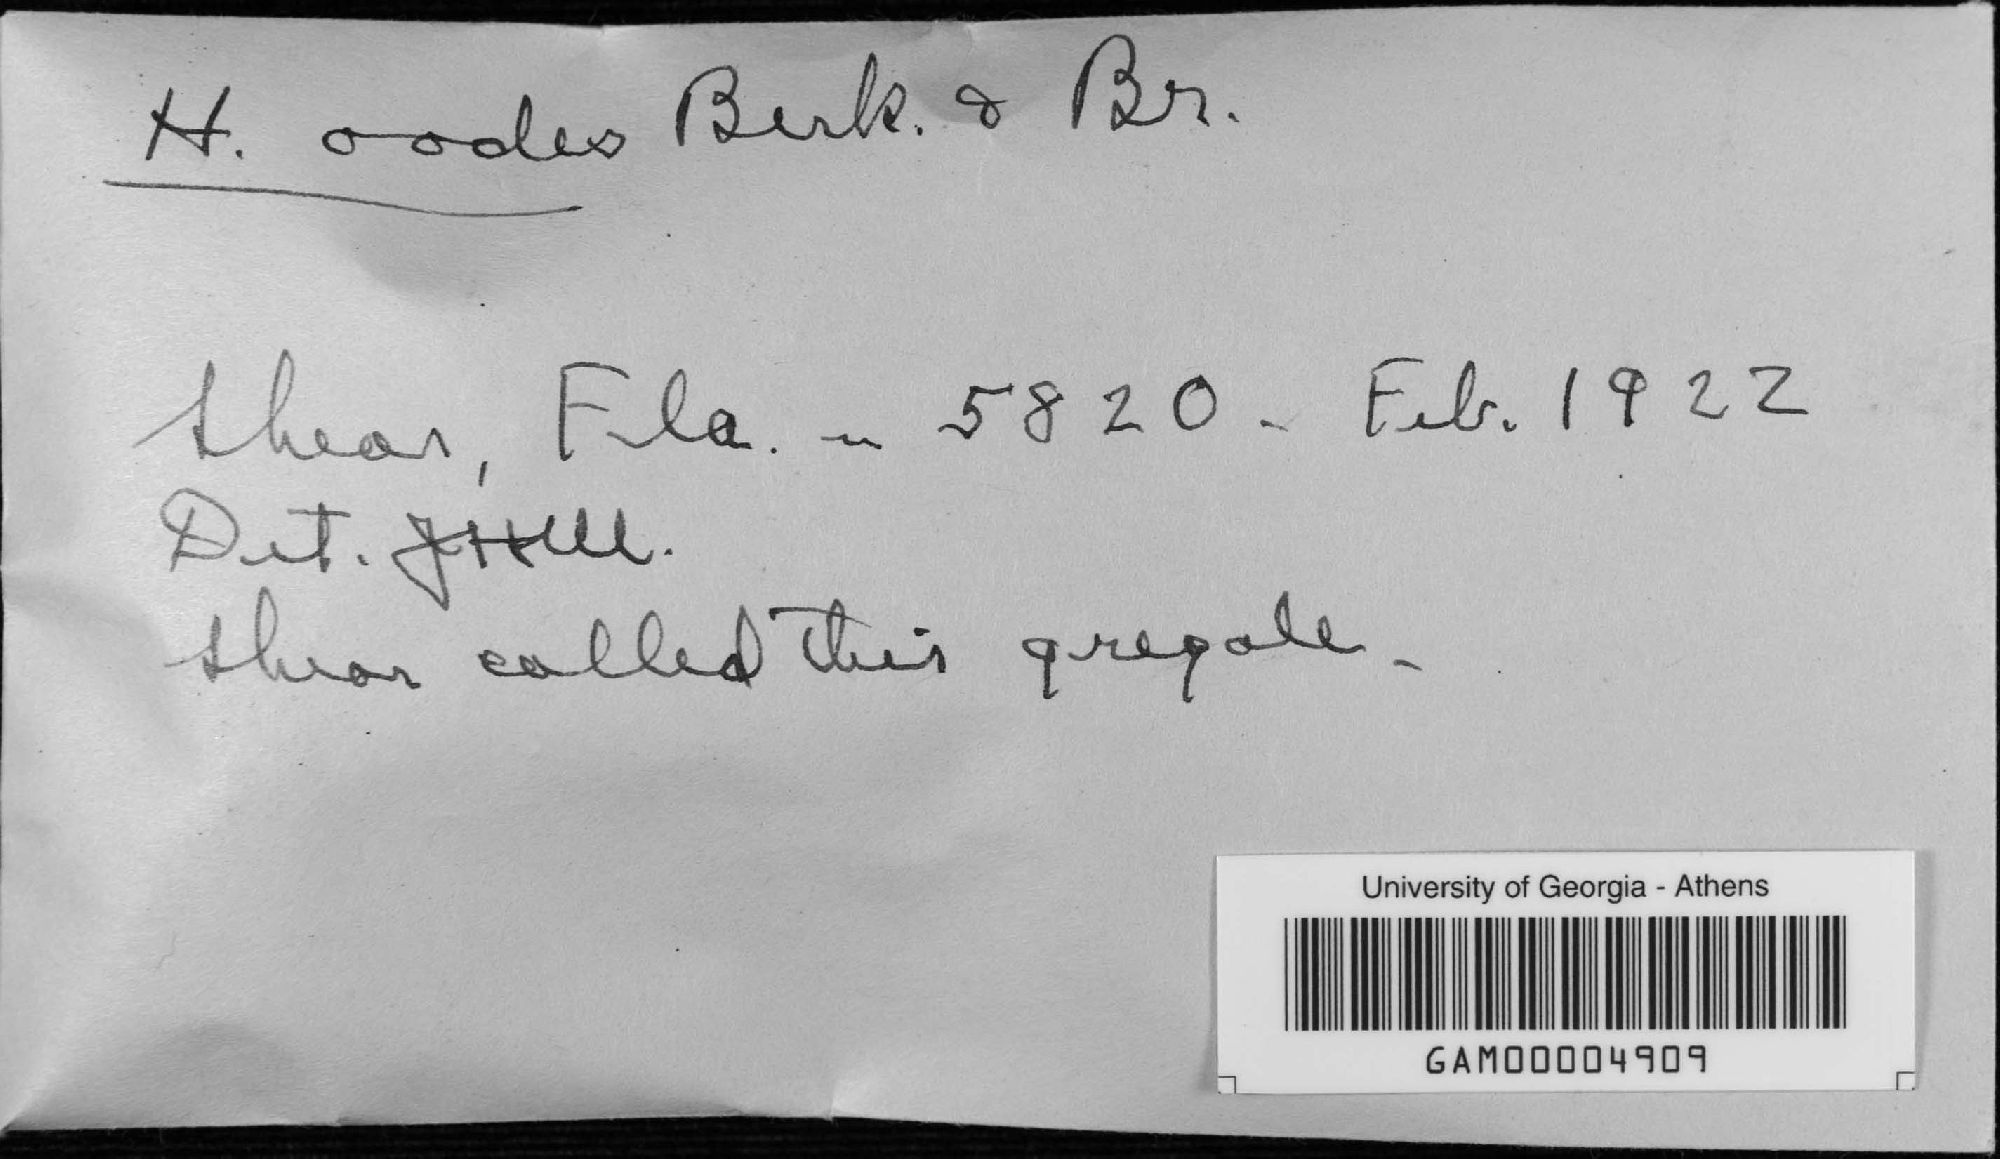 H. oodes Berk. & Br.
Shear, Fla. - 5820 - Feb. 1922
Det. JHM.
Shear called this gregale -
University of Georgia - Athens
GAM00004909